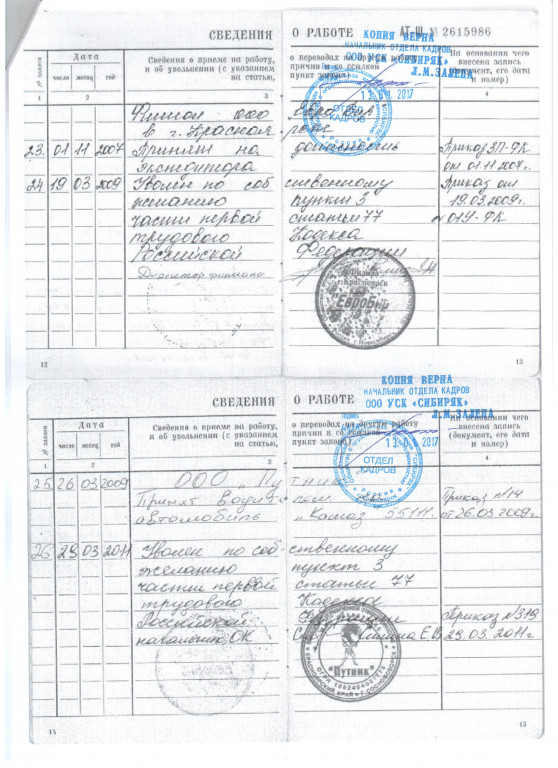 СВЕДЕНИЯ О РАБОТЕ АТ-III № 2615986
КОПИЯ ВЕРНА
НАЧАЛЬНИК ОТДЕЛА КАДРОВ
ООО УСК «СИБИРЯК»
Л.М.ЗАЛЕНА
2017
ОТДЕЛ КАДРОВ
№ записи Дата Сведения о приеме на работу, о переводах на другую работу На основании чего
число месяц год и об увольнении (с указанием причин и со ссылкой на внесена запись
на статью, пункт закона) (документ, его дата и номер)
1 2 3 4
Филиал ООО
в г. Красноя рске
23. 01 11 2007 Принят на должность Приказ
экспедитора от 01.11.2007г.
24 19 03 2009 Уволен по соб ственному Приказ от
желанию пункт 3 19.03.2009г.
части первой статьи 77
трудового Кодекса
Российской Федерации
Директор филиала
г.Красноярск
ЕвроБир
12 13
СВЕДЕНИЯ О РАБОТЕ
КОПИЯ ВЕРНА
НАЧАЛЬНИК ОТДЕЛА КАДРОВ
ООО УСК «СИБИРЯК»
Л.М.ЗАЛЕНА
2017
ОТДЕЛ КАДРОВ
№ записи Дата Сведения о приеме на работу, о переводах на другую работу На основании чего
число месяц год и об увольнении (с указанием причин и со ссылкой на внесена запись
на статью, пункт закона) (документ, его дата и номер)
1 2 3 4
25 26 03 2009 ООО „Пу тник“
Принят водит елем Приказ №14
автомобиль „Камаз 55111“ от 26.03.2009г.
26 29 03 2011 Уволен по соб ственному
желанию пункт 3
части первой статьи 77
трудового Кодекса
Российской Федерации Приказ
начальник ОК 29.03.2011г.
"Путник"
14 15